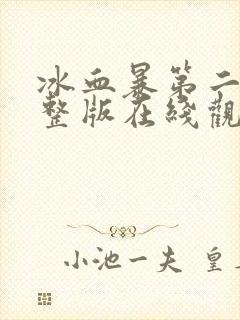 冰血暴第二
整版在线觀
小池一夫 皇